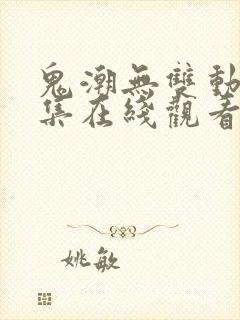 鬼潮無雙動
集在綫觀看
姚敏